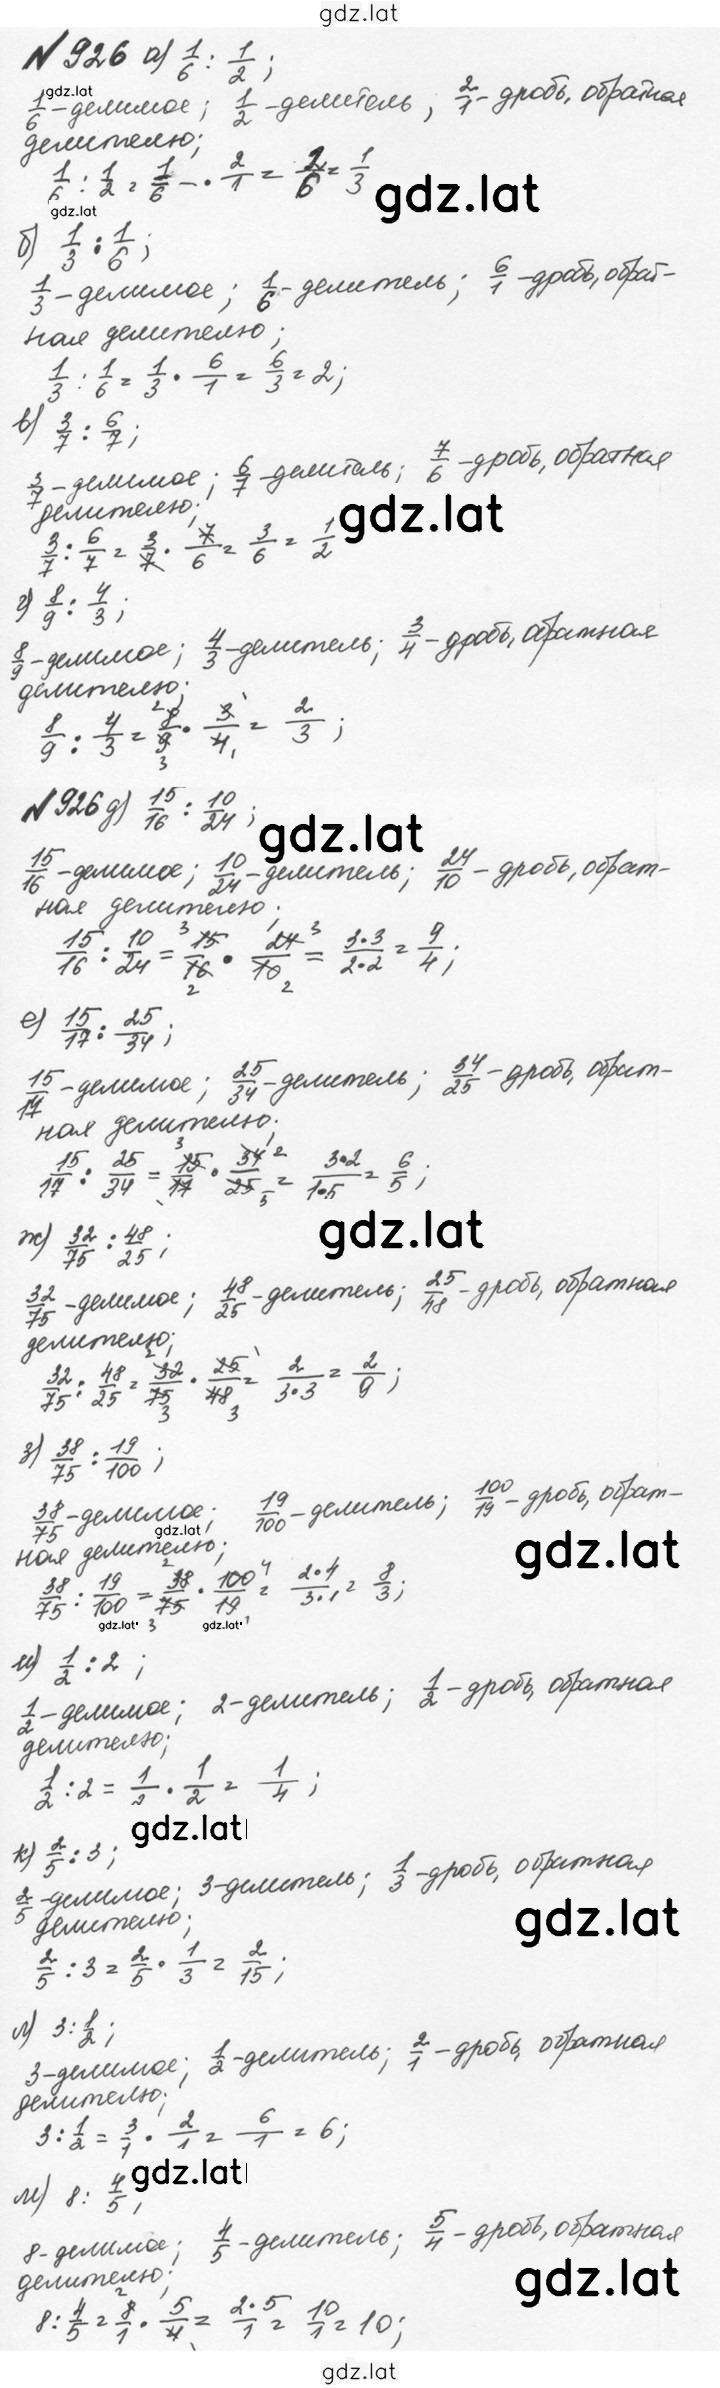 gdz.lat
№926 а) 1/6 : 1/2 ;
gdz.lat
1/6 - делимое; 1/2 - делитель; 2/1 - дробь, обратная
делителю;
1/6 : 1/2 = 1/6 · 2/1 = 2/6 = 1/3
gdz.lat
gdz.lat
б) 1/3 : 1/6 ;
1/3 - делимое; 1/6 - делитель; 6/1 - дробь, обрат-
ная делителю;
1/3 : 1/6 = 1/3 · 6/1 = 6/3 = 2;
в) 3/7 : 6/7 ;
3/7 - делимое; 6/7 - делитель; 7/6 - дробь, обратная
делителю;
gdz.lat
3/7 : 6/7 = 3/7 · 7/6 = 3/6 = 1/2
г) 8/9 : 4/3 ;
8/9 - делимое; 4/3 - делитель; 3/4 - дробь, обратная
делителю;
8/9 : 4/3 = 8/9 · 3/4 = 2/3 ;
№926 д) 15/16 : 10/24 ;
gdz.lat
15/16 - делимое; 10/24 - делитель; 24/10 - дробь, обрат-
ная делителю;
15/16 : 10/24 = 15/16 · 24/10 = 3·3/2·2 = 9/4 ;
е) 15/17 : 25/34 ;
15/17 - делимое; 25/34 - делитель; 34/25 - дробь, обрат-
ная делителю;
15/17 : 25/34 = 15/17 · 34/25 = 3·2/1·5 = 6/5 ;
gdz.lat
ж) 32/75 : 48/25 ;
32/75 - делимое; 48/25 - делитель; 25/48 - дробь, обратная
делителю;
32/75 : 48/25 = 32/75 · 25/48 = 2/3·3 = 2/9 ;
з) 38/75 : 19/100 ;
38/75 - делимое; 19/100 - делитель; 100/19 - дробь, обрат-
gdz.lat
ная делителю;
gdz.lat
38/75 : 19/100 = 38/75 · 100/19 = 2·4/3·1 = 8/3 ;
gdz.lat
gdz.lat
и) 1/2 : 2 ;
1/2 - делимое; 2 - делитель; 1/2 - дробь, обратная
делителю;
1/2 : 2 = 1/2 · 1/2 = 1/4 ;
gdz.lat
к) 2/5 : 3 ;
2/5 - делимое; 3 - делитель; 1/3 - дробь, обратная
делителю;
gdz.lat
2/5 : 3 = 2/5 · 1/3 = 2/15 ;
л) 3 : 1/2 ;
3 - делимое; 1/2 - делитель; 2/1 - дробь, обратная
делителю;
3 : 1/2 = 3/1 · 2/1 = 6/1 = 6;
gdz.lat
м) 8 : 4/5 ;
8 - делимое; 4/5 - делитель; 5/4 - дробь, обратная
делителю;
gdz.lat
8 : 4/5 = 8/1 · 5/4 = 2·5/1 = 10/1 = 10;
gdz.lat